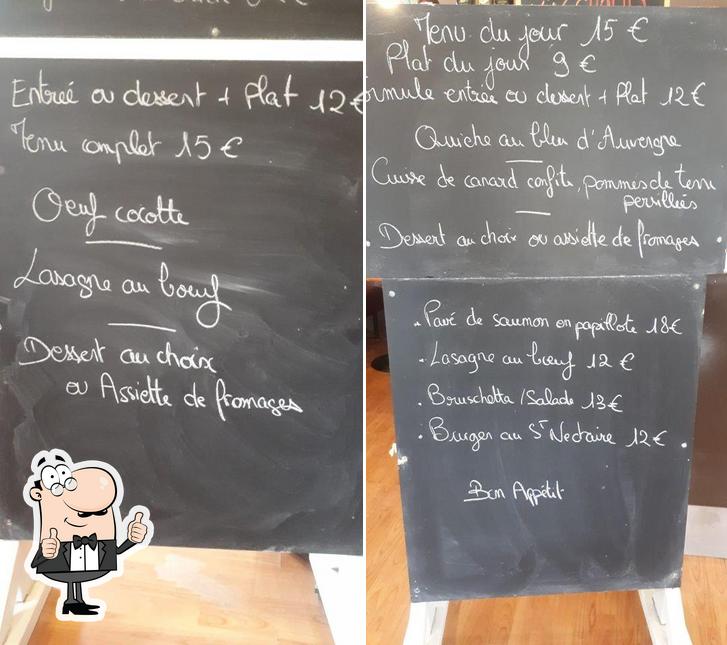 Entrée ou dessert + Plat 12€
Menu complet 15€
Oeuf cocotte
Lasagne au boeuf
Dessert au choix
ou Assiette de fromages
Menu du jour 15 €
Plat du jour 9 €
ormule entrée ou dessert + Plat 12€
Quiche au bleu d'Auvergne
Cuisse de canard confite, pommes de terre
persillées
. Dessert au choix ou assiette de fromages .
. Pavé de saumon en papillote 18€
. Lasagne au boeuf 12 €
. Bruschetta /Salade 13€
. Burger au St Nectaire 12€
Bon Appétit